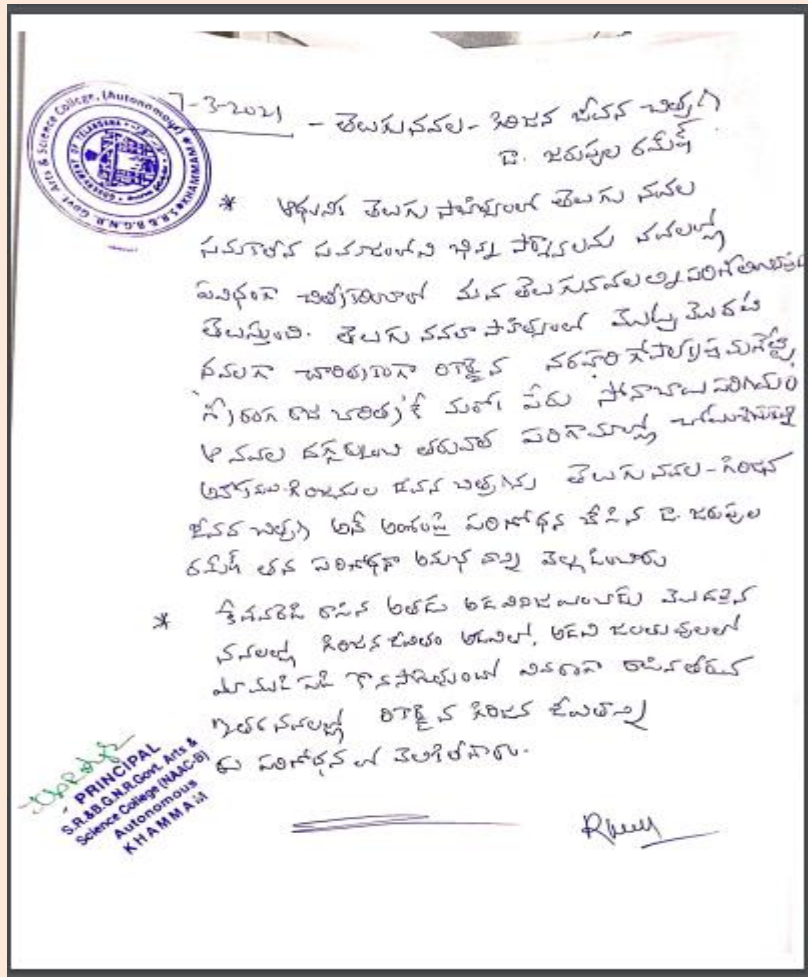 S.R.&B.G.N.R. Govt. Arts & Science College, (Autonomous) KHAMMAM
GOVERNMENT OF TELANGANA
7-3-2021 - తెలుగునవల - గిరిజన జీవన చిత్రణ
డా. జరుపుల రమేష్
* ఆధునిక తెలుగు సాహిత్యంలో తెలుగు నవల
సమకాలీన సమాజంలోని భిన్న పార్శ్వాలను నవలల్లో
ఏవిధంగా చిత్రీకరించారో మన తెలుగునవలల్ని పరిశీలించినపుడు
తెలుస్తుంది. తెలుగు నవలా సాహిత్యంలో మొట్ట మొదటి
నవలగా చారిత్రకంగా రికార్డైన నరహరి గోపాలకృష్ణమశెట్టి
'శ్రీరంగ రాజ చరిత్ర'కే మరో పేరు సోనాబాయి పరిణయం
ఆ నవల దగ్గర్నుంచి తరువాత పరిణామాల్లో
గిరిజనుల జీవన చిత్రణను తెలుగు నవల - గిరిజన
జీవన చిత్రణ అనే అంశంపై పరిశోధన చేసిన డా. జరుపుల
రమేష్ తన పరిశోధనా అనుభవాన్ని వెల్లడించారు
* కేశవరెడ్డి రాసిన అతడు అడవిని జయించాడు మొదలైన
నవలల్లో గిరిజన జీవితం అడవిలో, అడవి జంతువులలో
ముడిపడి కొనసాగుతుందో వివరంగా రాసినతీరును
ఇతర నవలల్లో రికార్డైన గిరిజన జీవితాన్ని
ఈ పరిశోధనలో వెలికితీసారు.
PRINCIPAL
S.R.&B.G.N.R.Govt. Arts &
Science College (NAAC-B)
Autonomous
KHAMMAM